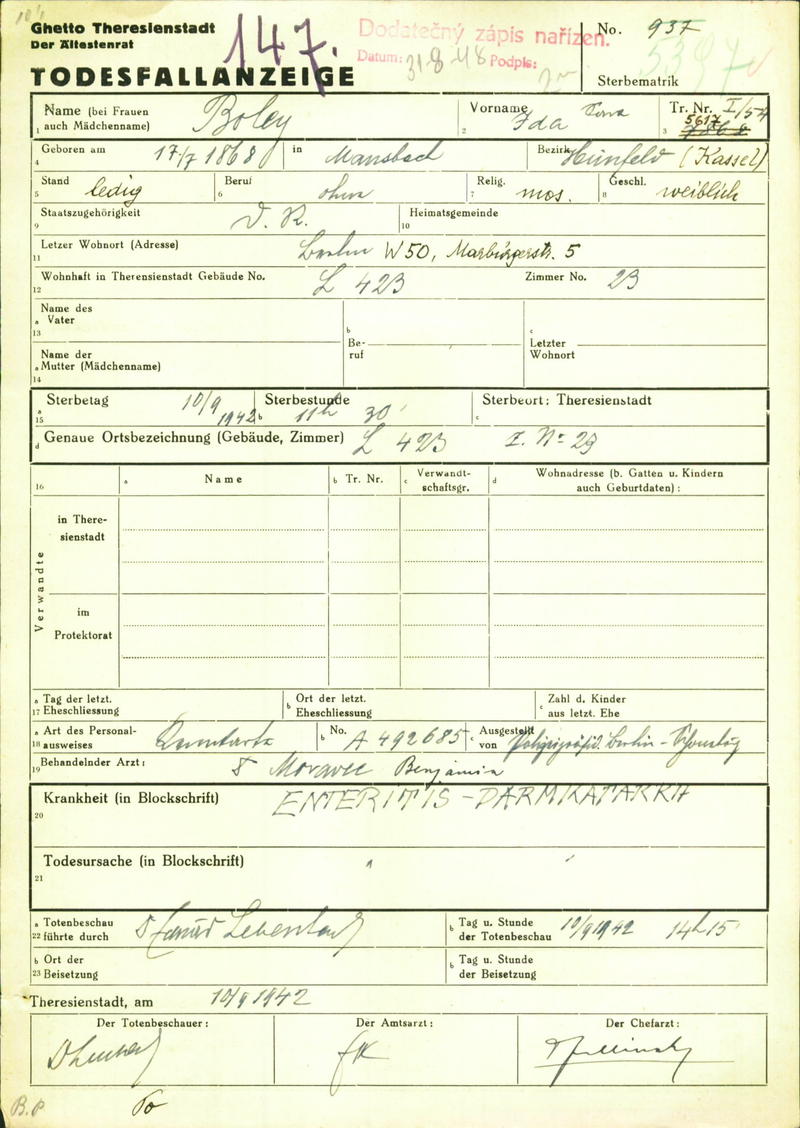 Ghetto Theresienstadt
Der Ältestenrat
TODESFALLANZEIGE
147.
Dodatečný zápis nařízen.
Datum: 31 8 48 Podpis:
No. 937
Sterbematrik
Name (bei Frauen auch Mädchenname) Boley
1
Vorname Ida Sara
2
Tr. Nr. I/54
5617
3
Geboren am 17/7 1868
4
in Mansbach
Bezirk Hünfeld (Kassel)
Stand ledig
5
Beruf ohne
6
Relig. mos.
7
Geschl. weiblich
8
Staatszugehörigkeit D. R.
9
Heimatsgemeinde
10
Letzer Wohnort (Adresse) Berlin W50, Marburgerstr. 5
11
Wohnhaft in Theresienstadt Gebäude No. L 423
12
Zimmer No. 23
Name des
a Vater
13
Name der
a Mutter (Mädchenname)
14
b
Be-
ruf
c
Letzter
Wohnort
Sterbetag 10/9 1942
a
15
Sterbestunde 11h 30'
b
Sterbeort: Theresienstadt
c
d Genaue Ortsbezeichnung (Gebäude, Zimmer) L 423 Z. No 23
16
a Name
b Tr. Nr.
c Verwandt-
schaftsgr.
d Wohnadresse (b. Gatten u. Kindern
auch Geburtdaten):
Verwandte
in There-
sienstadt
im
Protektorat
a Tag der letzt.
17 Eheschliessung
b Ort der letzt.
Eheschliessung
c Zahl d. Kinder
aus letzt. Ehe
a Art des Personal-
18 ausweises Kennkarte
b No. A 492685
c Ausgestellt
von Berlin
Behandelnder Arzt: Dr Moravec Benjamin
19
Krankheit (in Blockschrift) ENTERITIS - DARMKATARRH
20
Todesursache (in Blockschrift)
21
a Totenbeschau
22 führte durch
b Tag u. Stunde
der Totenbeschau 10/9 1942 14h 15
b Ort der
23 Beisetzung
b Tag u. Stunde
der Beisetzung
Theresienstadt, am 10/9 1942
Der Totenbeschauer:
Der Amtsarzt:
Der Chefarzt:
B.P